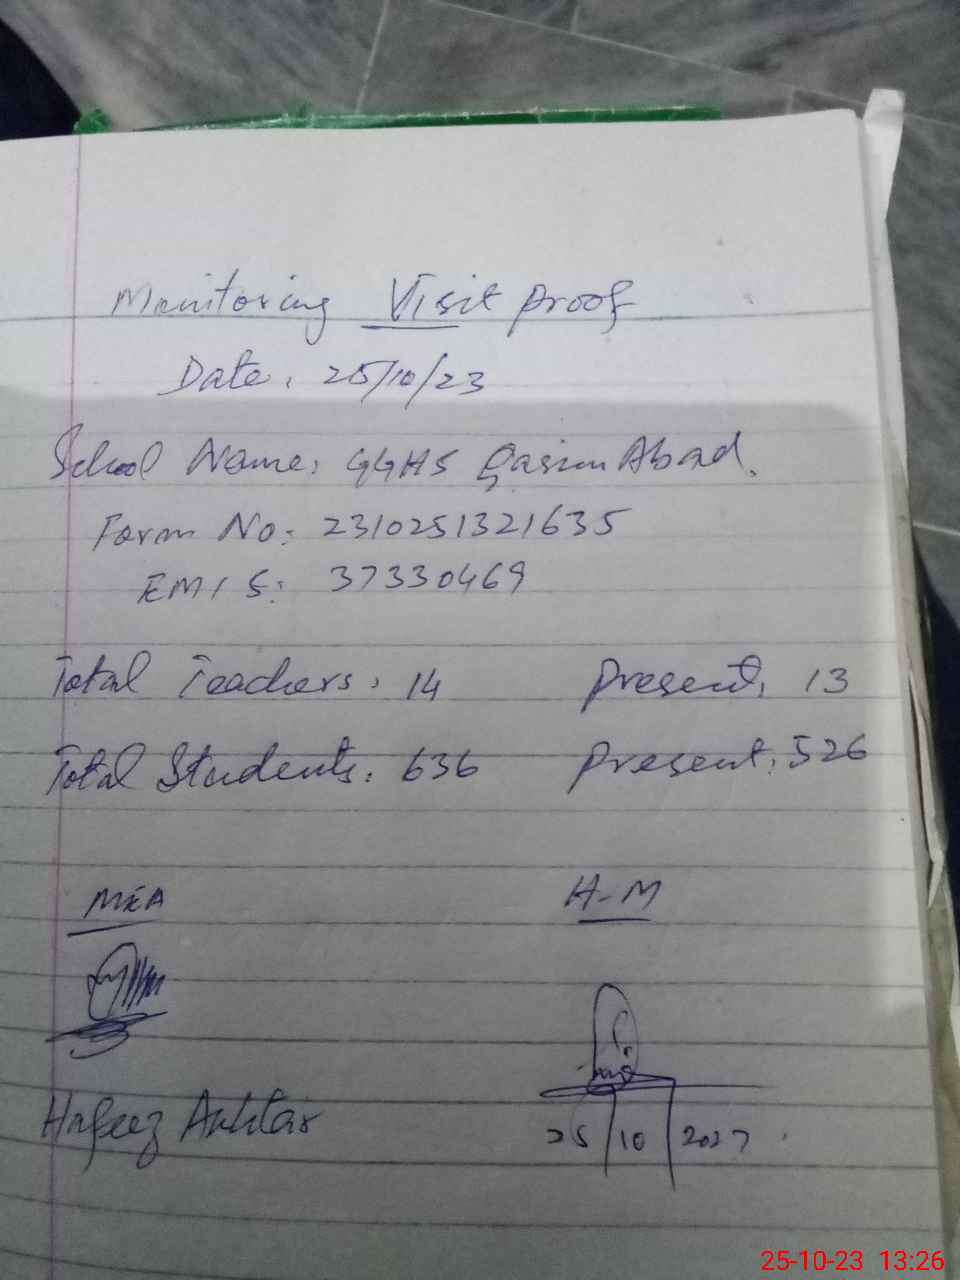 Monitoring Visit proof
Date: 25/10/23
School Name: GGHS Qasim Abad.
Form No: 2310251321635
EMIS: 37330469
Total Teachers: 14 Present: 13
Total Students: 636 Present: 526
MEA H-M
Hafeez Akhtar 25/10/2023
25-10-23 13:26